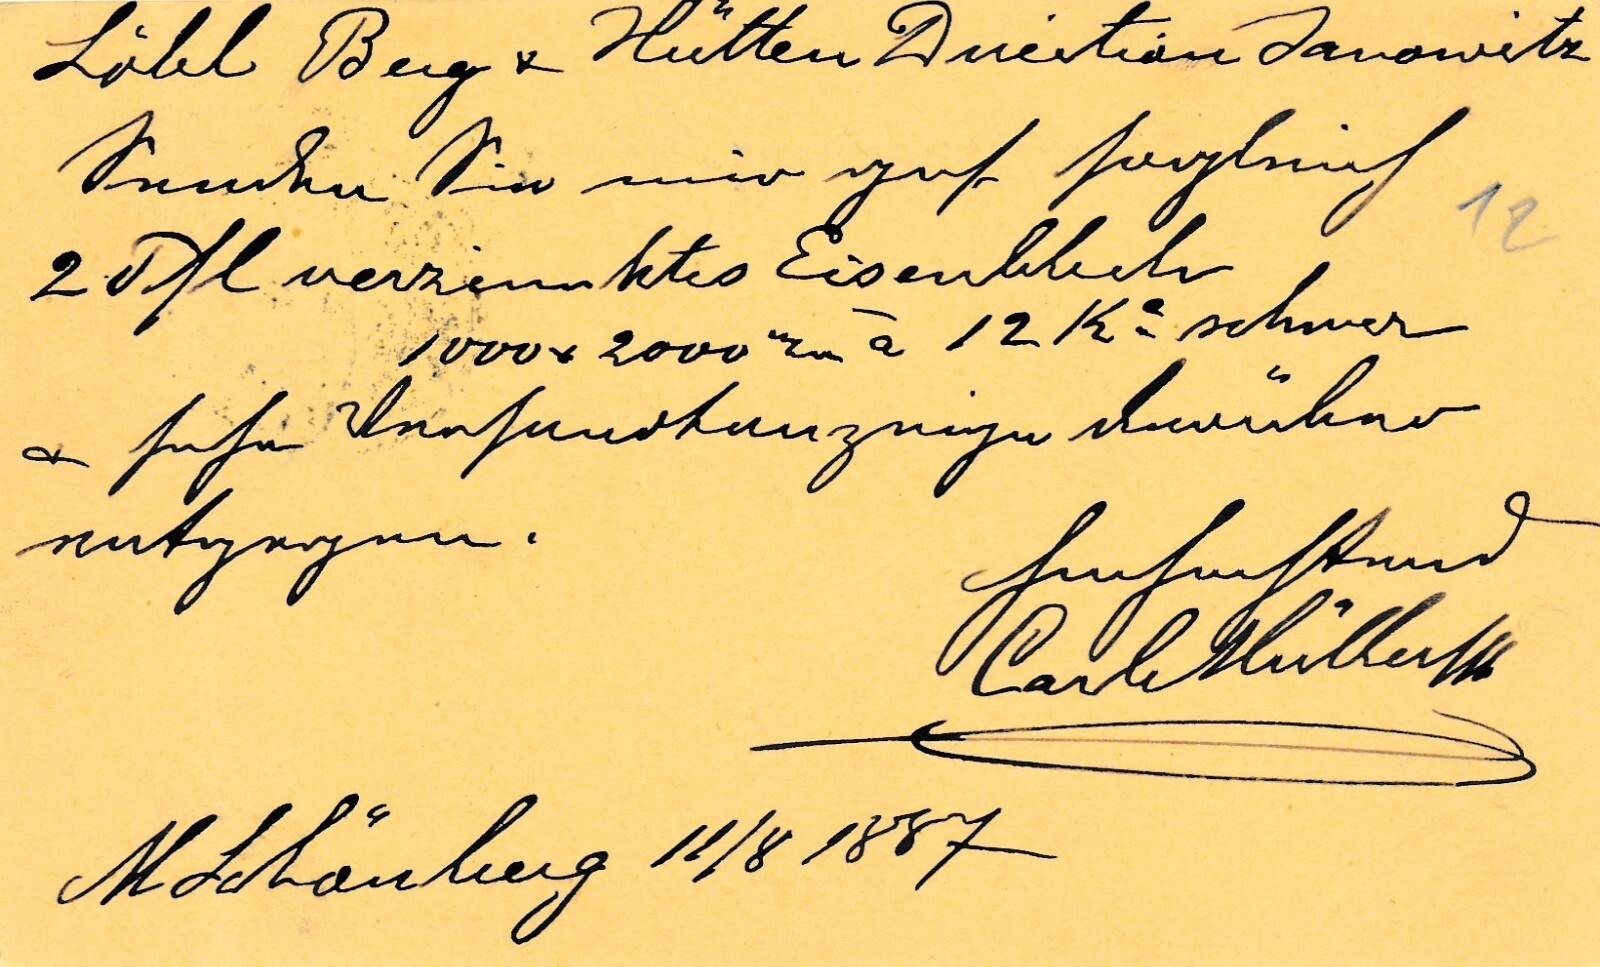 Löbl Berg & Hütten Direction Janowitz
Senden Sie mir gef. sogleich
2 Tfl verzinnktes Eisenblech
1000 x 2000 m/m à 12 Ko schwer
12
& sehe Ihrer darüber
entgegen.
Hochachtend
Carl Müller
M Schönberg 11/8 1887